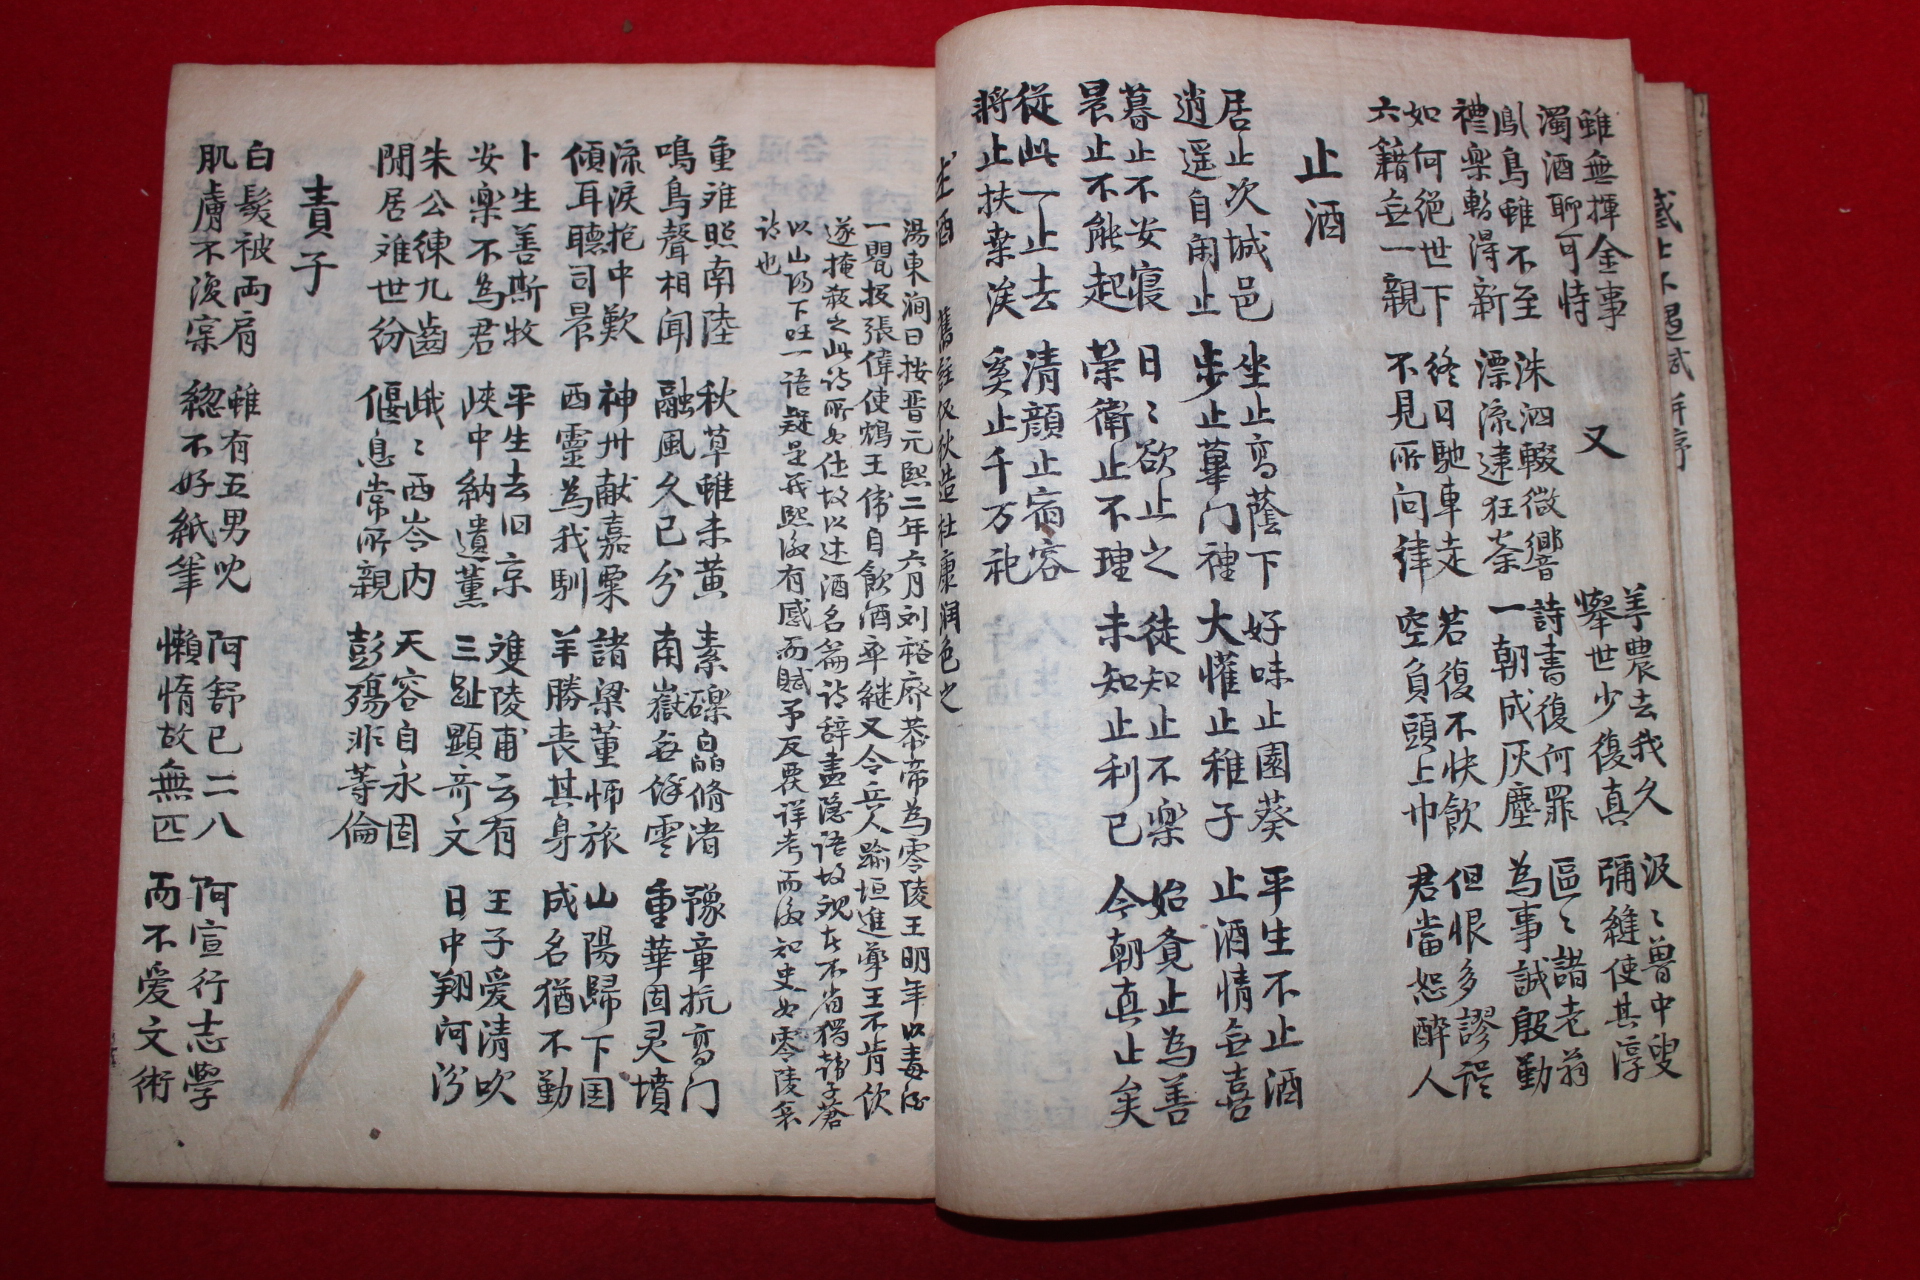 感士不遇賦并序
雖無揮金事
濁酒聊可恃
又
羲農去我久
擧世少復真
汲〻魯中叟
彌縫使其淳
鳳鳥雖不至
禮楽暫淂新
洙泗輟微響
漂流逮狂秦
詩書復何罪
一朝成灰塵
區〻諸老翁
為事誠殷勤
如何絕世下
六籍無一親
終日馳車走
不見所问津
若復不快飲
空負頭上巾
但恨多謬誤
君當恕醉人
止酒
居止次城邑
逍遥自閑止
坐止高蔭下
步止蓽门裡
好味止園葵
大懽止稚子
平生不止酒
止酒情無喜
暮止不安寝
晨止不能起
日〻欲止之
榮衛止不理
徒知止不樂
未知止利已
始覓止為善
今朝真止矣
從此一止去
將止扶桒涘
清顔止宿容
奚止千万祀
述酒 舊註仪狄造杜康润色之
湯東澗曰按晋元熙二年六月刘裕廃恭帝為零陵王明年以毒酒
一甖授張偉使鴆王偉自飲酒卒継又令兵人踰垣進薬王不肯飲
遂掩殺之此诗所為作故以述酒名篇诗辞盡隐语故观者不省獨韩子蒼
以山陽下国一语疑是義熙後有感而賦予反覆详考而後知史為零陵哀
诗也
重难照南陸
鳴鳥聲相聞
秋草雖未黄
融風久已分
素礫皛脩渚
南嶽無餘雲
豫章抗高门
重華固灵墳
流淚抱中歎
傾耳聽司晨
神州献嘉粟
西靈為我馴
諸梁董师旅
羊勝丧其身
山陽歸下国
成名猶不勤
卜生善斯牧
安楽不為君
平生去旧京
峽中納遺薰
雙陵甫云有
三趾顯奇文
王子愛清吹
日中翔河汾
朱公練九齒
閒居难世纷
峨〻西岺内
偃息常所親
天容自永固
彭殤非等倫
責子
白髮被両肩
肌膚不復实
雖有五男児
総不好紙筆
阿舒已二八
懶惰故無匹
阿宣行志学
而不爱文術